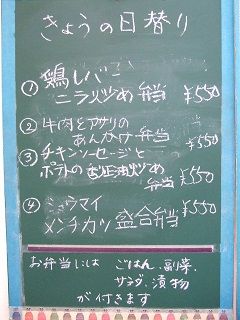 きょうの日替り
① 鶏レバー
ニラ炒め弁当 ¥550
② 牛肉とアサリの
あんかけ弁当 ¥550
③ チキンソーセージと
ポテトの醤油炒め
弁当 ¥550
④ シュウマイ
メンチカツ 盛合弁当 ¥550
お弁当には ごはん、副菜、
サラダ、漬物
が付きます